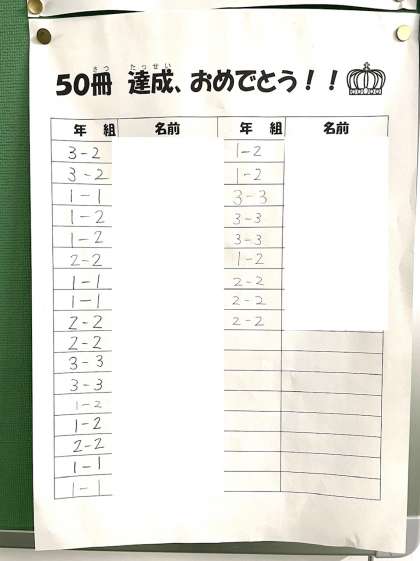 50冊 達成、おめでとう！！
年 組 名前 年 組 名前
3-2 1-2
3-2 1-2
1-1 3-3
1-2 3-3
1-2 3-3
2-2 1-2
1-1 2-2
1-1 2-2
2-2 2-2
2-2
3-3
3-3
1-2
1-2
2-2
1-1
1-1